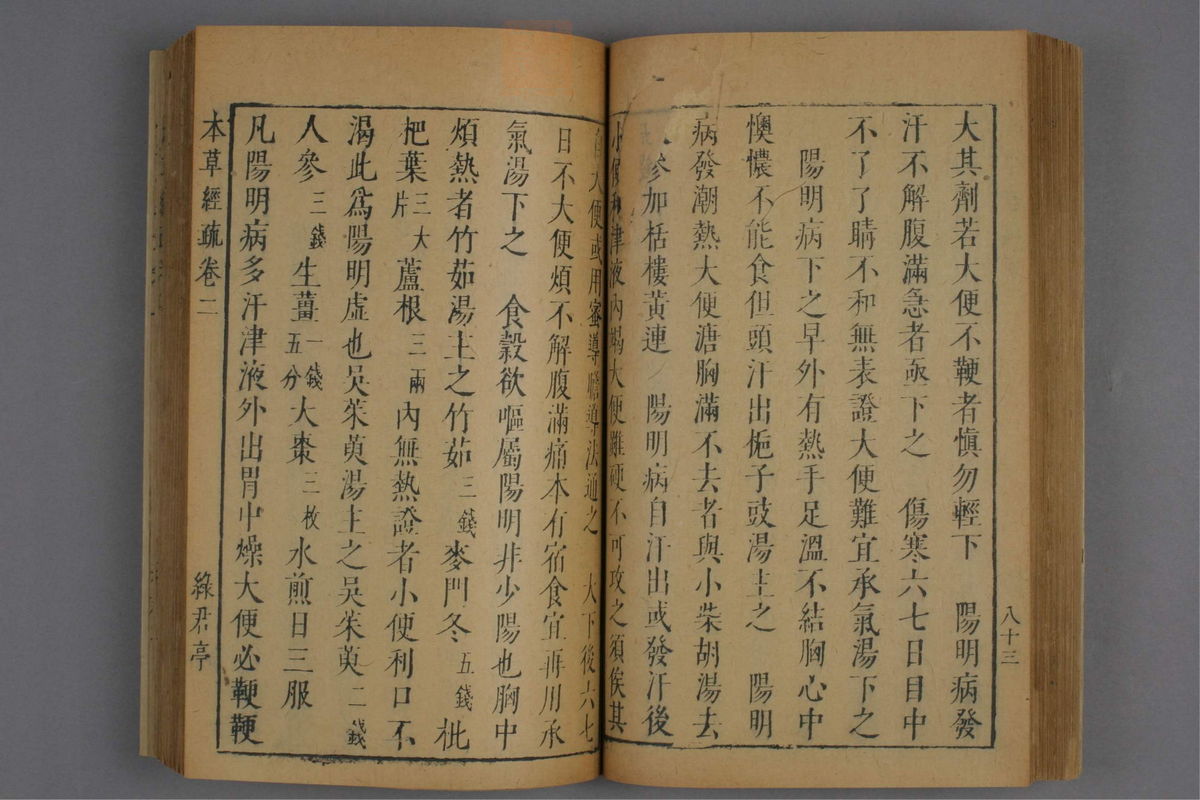 大其劑若大便不鞕者慎勿輕下　陽明病發
汗不解腹滿急者亟下之　傷寒六七日目中
不了了睛不和無表證大便難宜承氣湯下之
陽明病下之早外有熱手足溫不結胸心中
懊憹不能食但頭汗出梔子豉湯主之　陽明
病發潮熱大便溏胸滿不去者與小柴胡湯去
人參加栝樓黃連　陽明病自汗出或發汗後
小便利津液內竭大便雖硬不可攻之須俟其
八十三
自大便或用蜜導膽導法通之　大下後六七
日不大便煩不解腹滿痛本有宿食宜再用承
氣湯下之　食穀欲嘔屬陽明非少陽也胸中
煩熱者竹茹湯主之竹茹三錢麥門冬五錢枇
杷葉三大片蘆根三兩內無熱證者小便利口不
渴此爲陽明虛也吳茱萸湯主之吳茱萸二錢
人參三錢生薑一錢五分大棗三枚水煎日三服
凡陽明病多汗津液外出胃中燥大便必鞕鞕
本草經疏卷二
綠君亭